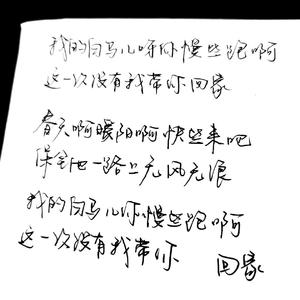 我的白马儿呀你慢些跑啊
这一次没有我带你回家
春天啊暖阳啊快些来吧
保全他一路上无风无浪
我的白马儿你慢些跑啊
这一次没有我带你 回家